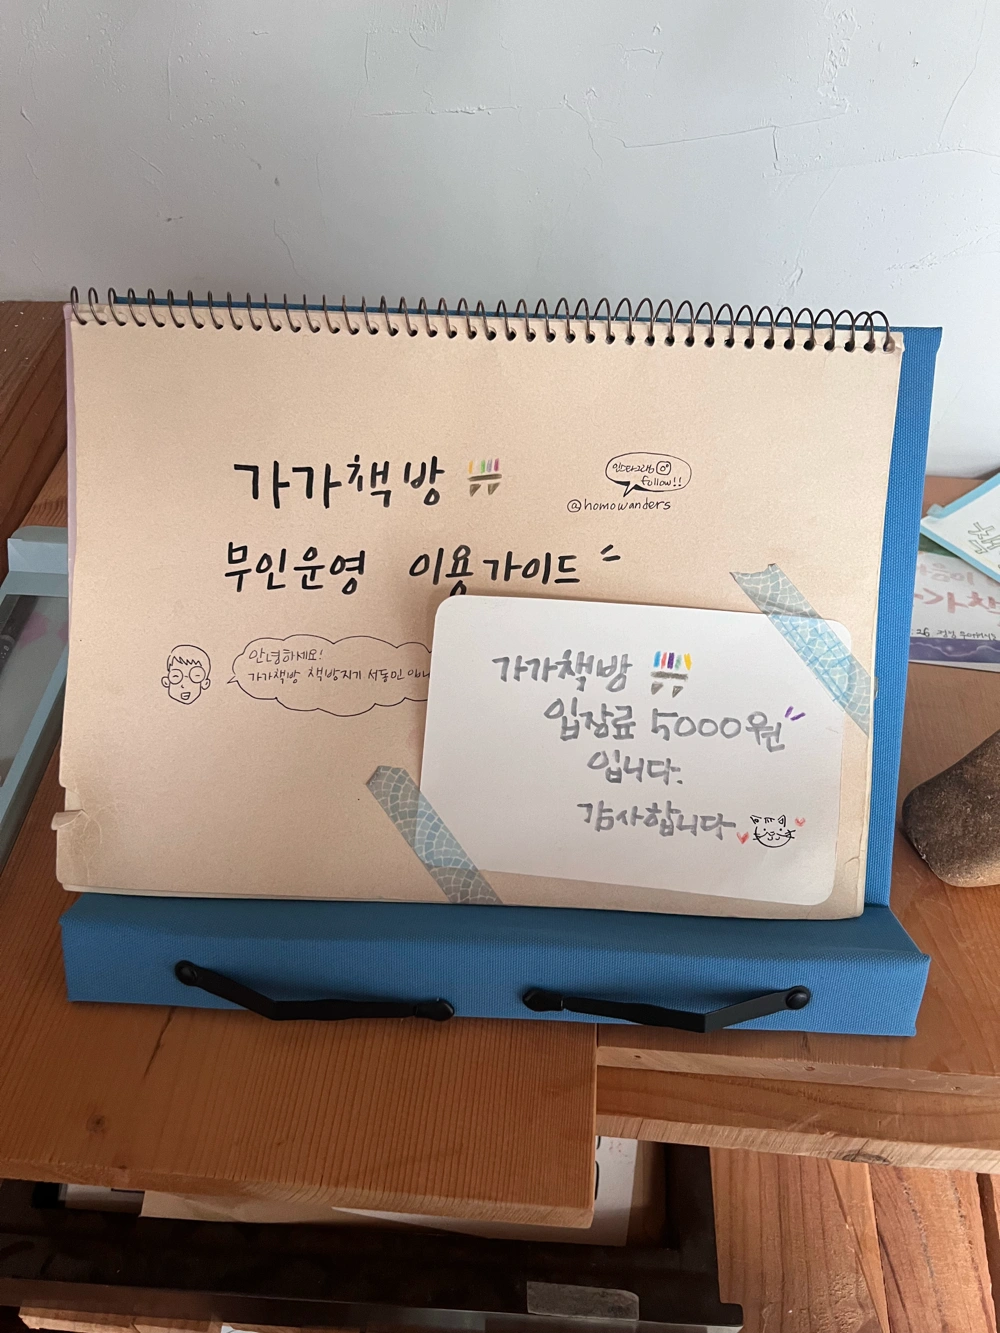 가가책방
인스타그램
follow!!
@homowanders
무인운영 이용가이드
안녕하세요!
가가책방 책방지기 서동민 입니
가가책방
입장료 5000원
입니다.
감사합니다